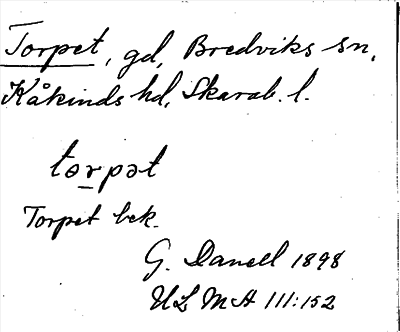 Torpet, gd, Bredviks sn,
Kåkinds hd, Skarab. l.
tɷrpət
Torpet bek.
G. Danell 1898
ULMA 111:152